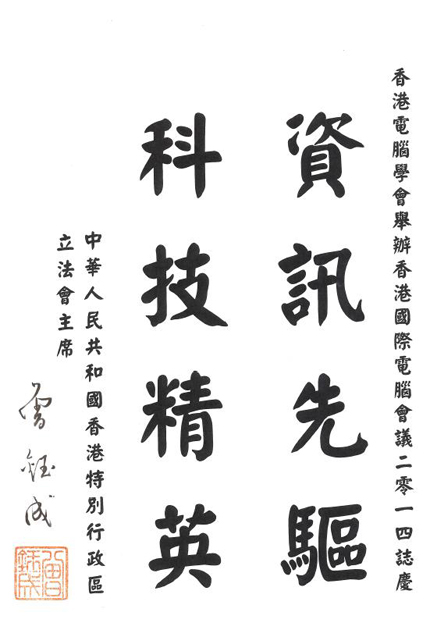 香港電腦學會舉辦香港國際電腦會議二零一四誌慶
資訊先驅
科技精英
中華人民共和國香港特別行政區
立法會主席
曾鈺成
曾鈺成